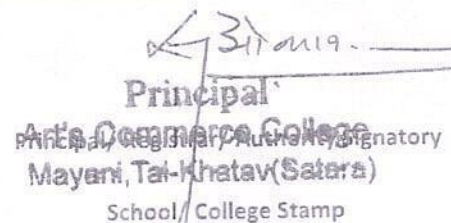 Principal
Arts Commerce College
Principal/ Registrar/ Authority Signatory
Mayani, Tal-Khatav(Satara)
School/ College Stamp